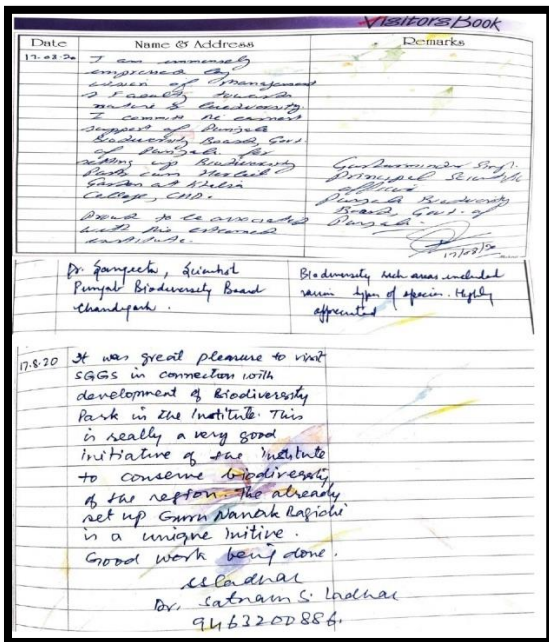 Visitors Book
Date Name & Address Remarks
17.08.20 I am immensely
impressed by
vision of management
& Faculty towards
nature & biodiversity.
I commit the earnest
support of Punjab
Biodiversity Board, Govt.
of Punjab for
setting up Biodiversity
Park cum Herbal
Garden at Khalsa
College, CHD.
Proud to be associated
with this esteemed
institute.
Gurharminder Singh
Principal Scientific
officer
Punjab Biodiversity
Board, Govt. of
Punjab.
17/08/20
Dr. Sangeeta, Scientist
Punjab Biodiversity Board
Chandigarh.
Biodiversity rich areas included
various types of species. Highly
appreciated
17.8.20 It was great pleasure to visit
SGGS in connection with
development of Biodiversity
Park in the Institute. This
is really a very good
initiative of the institute
to conserve biodiversity
of the region. The already
set up Guru Nanak Bagichi
is a unique initive.
Good work being done.
ssladhar
Dr. Satnam S. Ladhar
9463200886.